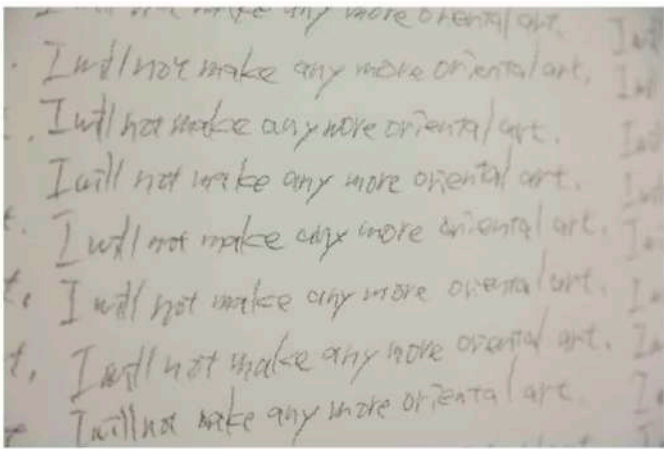 any more oriental art.
. I will not make any more oriental art. I will
. I will not make any more oriental art. I will
I will not make any more oriental art. I will
t. I will not make any more oriental art. I
t. I will not make any more oriental art. I
t. I will not make any more oriental art. I
I will not make any more oriental art. I